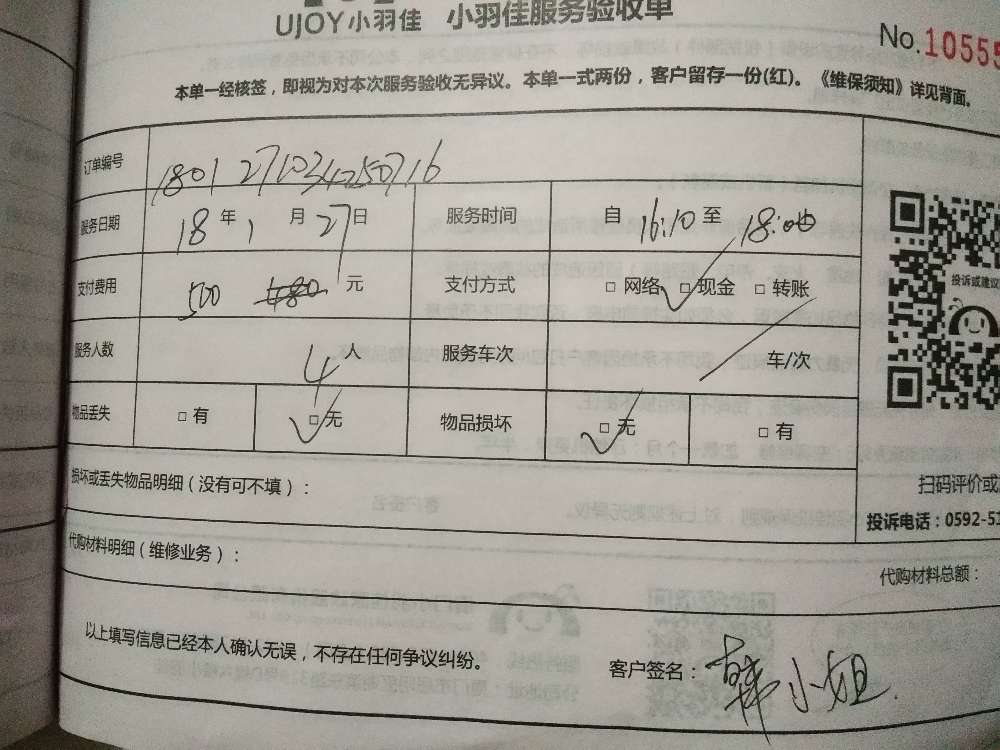 UJOY小羽佳 小羽佳服务验收单
No.10555
本单一经核签，即视为对本次服务验收无异议。本单一式两份，客户留存一份(红)。《维保须知》详见背面。
订单编号 1801271034250716
服务日期 18年1月27日 服务时间 自16:10至18:00
支付费用 500 480 元 支付方式 □网络 □现金 □转账
服务人数 4人 服务车次 车/次
物品丢失 □有 □无 物品损坏 □无 □有
投诉或建议
损坏或丢失物品明细（没有可不填）：
扫码评价或
投诉电话：0592-5
代购材料明细（维修业务）：
代购材料总额：
以上填写信息已经本人确认无误，不存在任何争议纠纷。
客户签名：韩小姐